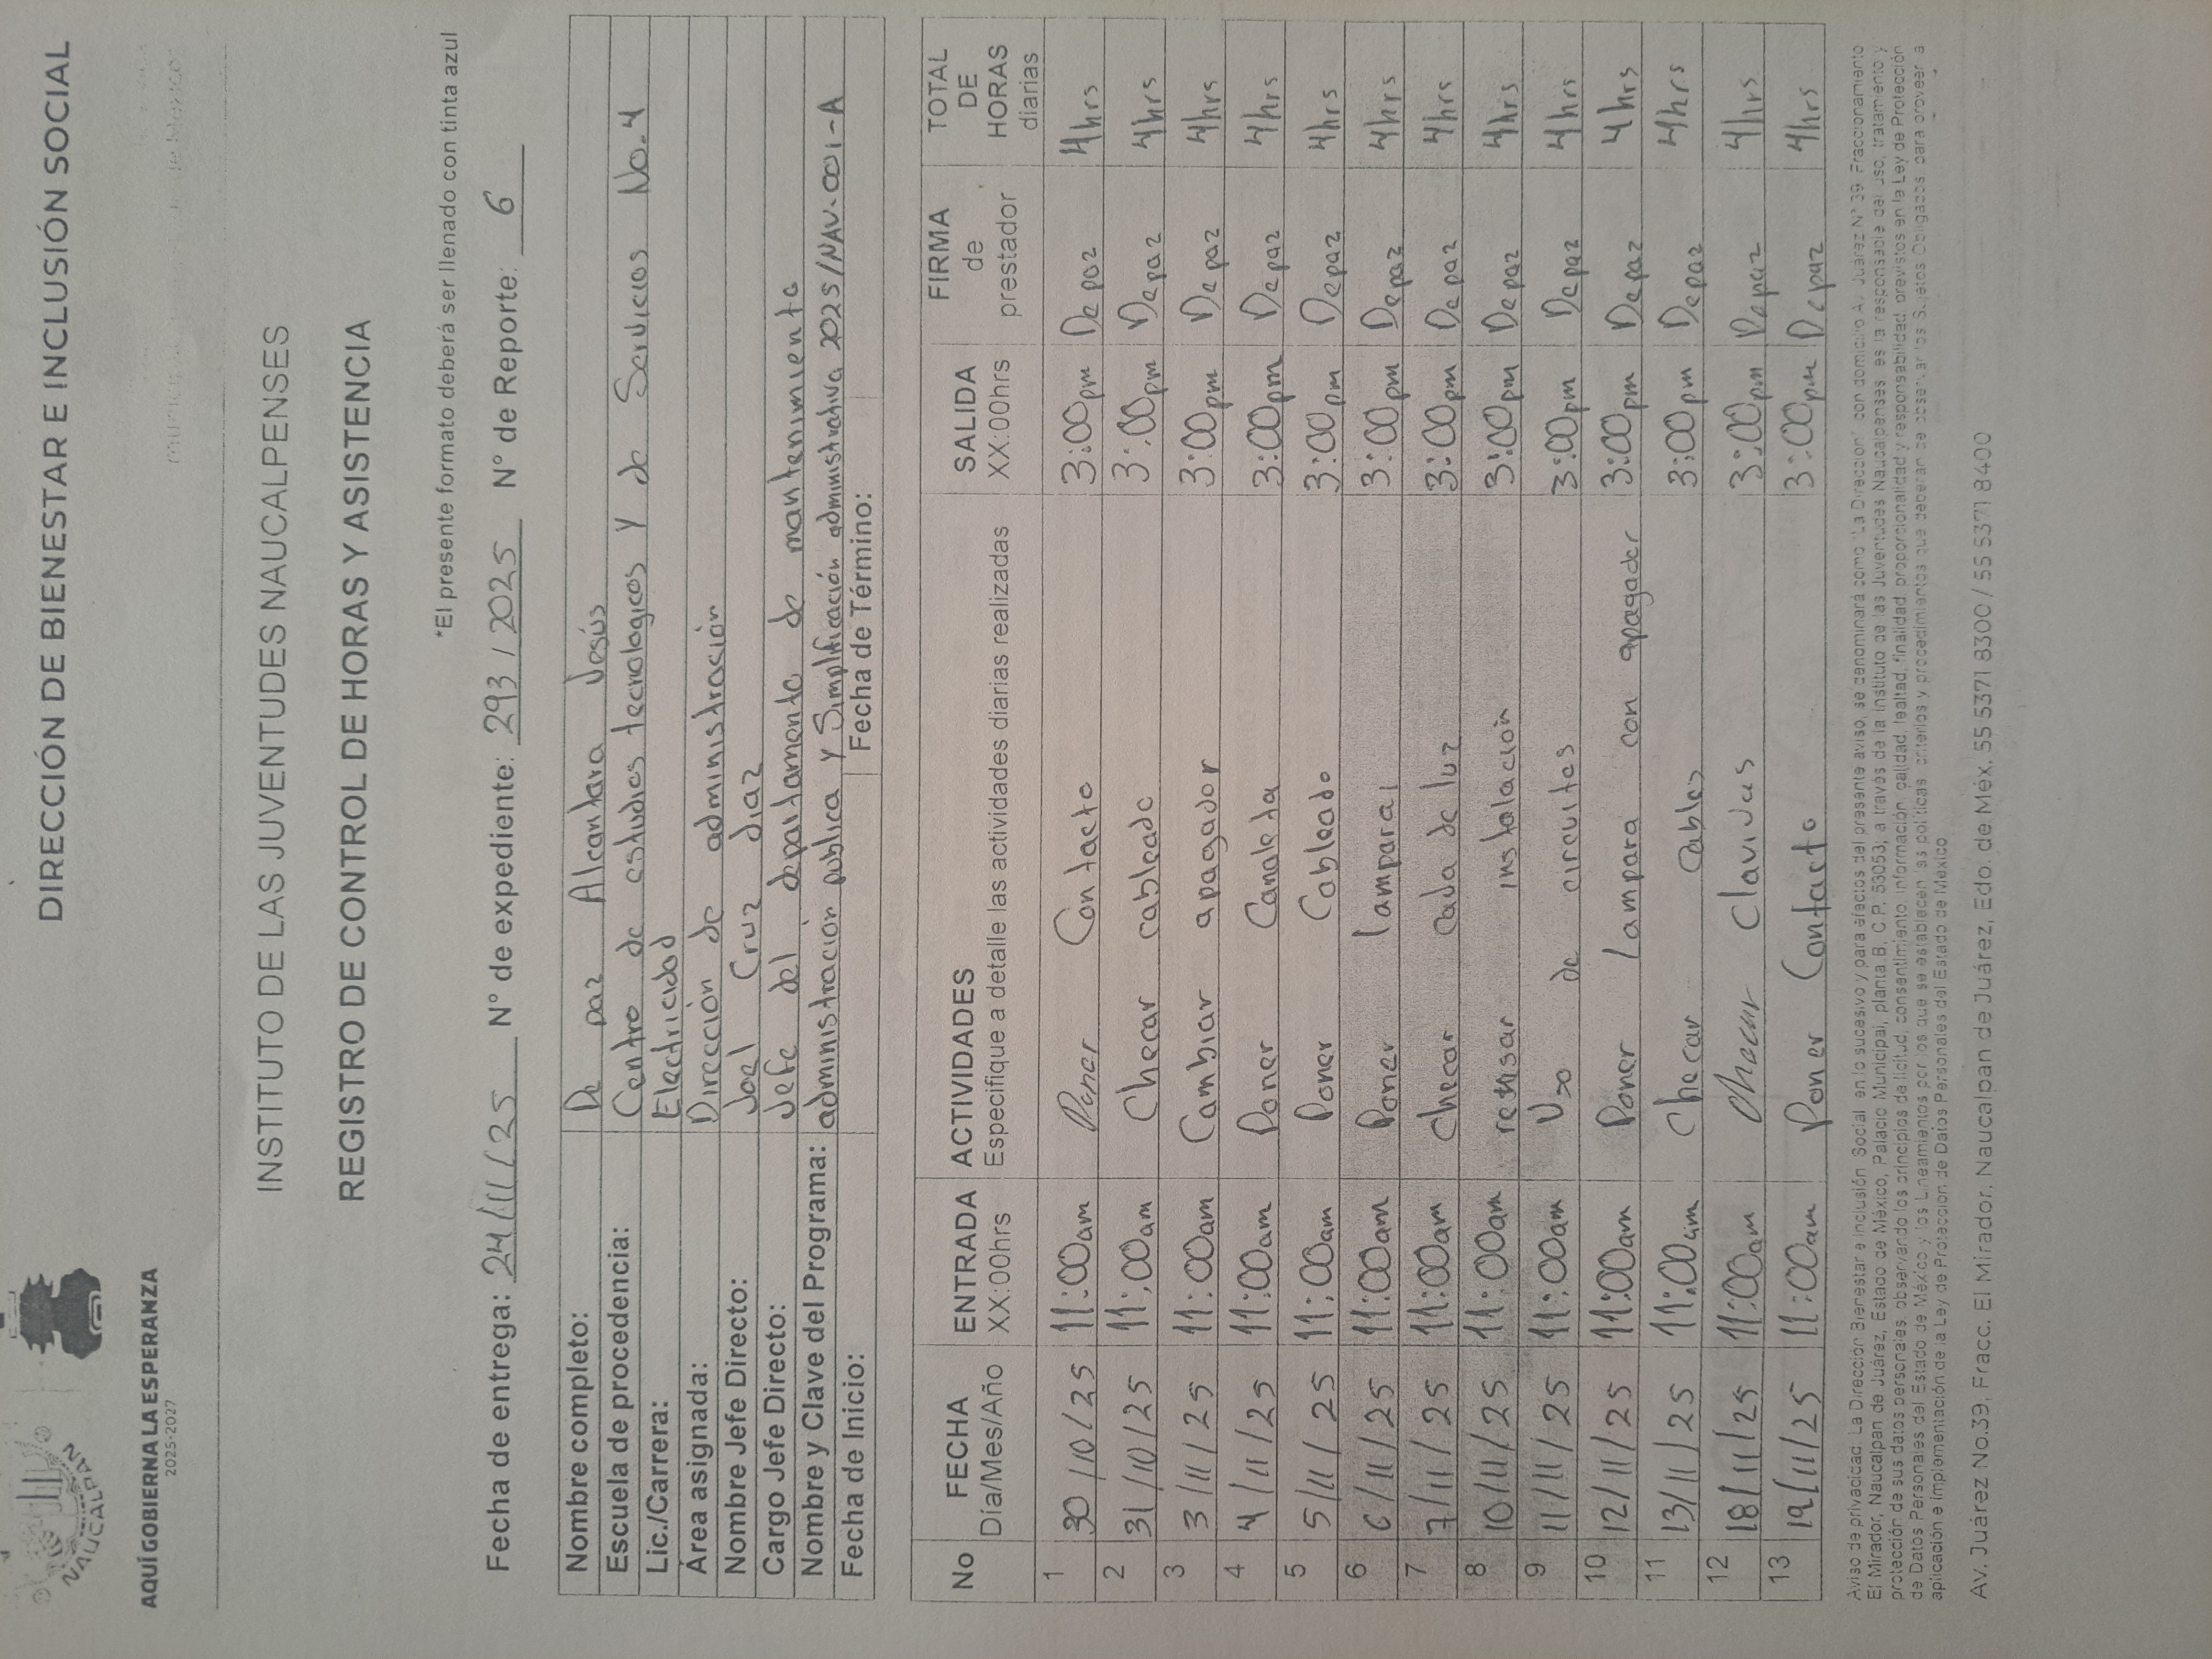 NAUCALPAN
AQUÍ GOBIERNA LA ESPERANZA
2025-2027
DIRECCIÓN DE BIENESTAR E INCLUSIÓN SOCIAL
INSTITUTO DE LAS JUVENTUDES NAUCALPENSES
REGISTRO DE CONTROL DE HORAS Y ASISTENCIA
*El presente formato deberá ser llenado con tinta azul
Fecha de entrega: 24/11/25 N° de expediente: 293/2025 N° de Reporte: 6
Nombre completo: De paz Alcantara Jesús
Escuela de procedencia: Centro de estudios tecnologicos y de Servicios No.4
Lic./Carrera: Electricidad
Área asignada: Dirección de administración
Nombre Jefe Directo: Joel Cruz diaz
Cargo Jefe Directo: Jefe del departamento de mantenimiento
Nombre y Clave del Programa: administración publica y Simplificación administrativa 2025/NAV-001-A
Fecha de Inicio: Fecha de Término:
No FECHA Día/Mes/Año ENTRADA XX:00hrs ACTIVIDADES Especifique a detalle las actividades diarias realizadas SALIDA XX:00hrs FIRMA de prestador TOTAL DE HORAS diarias
1 30/10/25 11:00am Poner Contacto 3:00pm Depaz 4hrs
2 31/10/25 11:00am Checar cableado 3:00pm Depaz 4hrs
3 3/11/25 11:00am Cambiar apagador 3:00pm Depaz 4hrs
4 4/11/25 11:00am Poner Canaleta 3:00pm Depaz 4hrs
5 5/11/25 11:00am Poner Cableado 3:00pm Depaz 4hrs
6 6/11/25 11:00am Poner lampara 3:00pm Depaz 4hrs
7 7/11/25 11:00am Checar cada de luz 3:00pm Depaz 4hrs
8 10/11/25 11:00am instalación 3:00pm Depaz 4hrs
9 11/11/25 11:00am Uso de circuitos 3:00pm Depaz 4hrs
10 12/11/25 11:00am Poner lampara con apagador 3:00pm Depaz 4hrs
11 13/11/25 11:00am Checar cables 3:00pm Depaz 4hrs
12 18/11/25 11:00am Checar Clavidas 3:00pm Depaz 4hrs
13 19/11/25 11:00am Poner Contacto 3:00pm Depaz 4hrs
Aviso de privacidad. La Dirección Bienestar e Inclusión Social, en lo sucesivo y para efectos del presente aviso, se denominará como "La Dirección", con domicilio Av. Juárez N° 39, Fraccionamiento
El Mirador, Naucalpan de Juárez, Estado de México, Palacio Municipal, planta B, C.P. 53053; a través de la Instituto de las Juventudes Naucalpenses, es la responsable del uso, tratamiento y
protección de sus datos personales, observando los principios de licitud, consentimiento, información, calidad, lealtad, finalidad, proporcionalidad y responsabilidad, previstos en la Ley de Protección
de Datos Personales del Estado de México y los Lineamientos por los que se establecen las políticas, criterios y procedimientos que deberán de observar los Sujetos Obligados para proveer a
aplicación e implementación de la Ley de Protección de Datos Personales del Estado de México
Av. Juárez No.39, Fracc. El Mirador, Naucalpan de Juárez, Edo. de Méx. 55 5371 8300 / 55 5371 8400